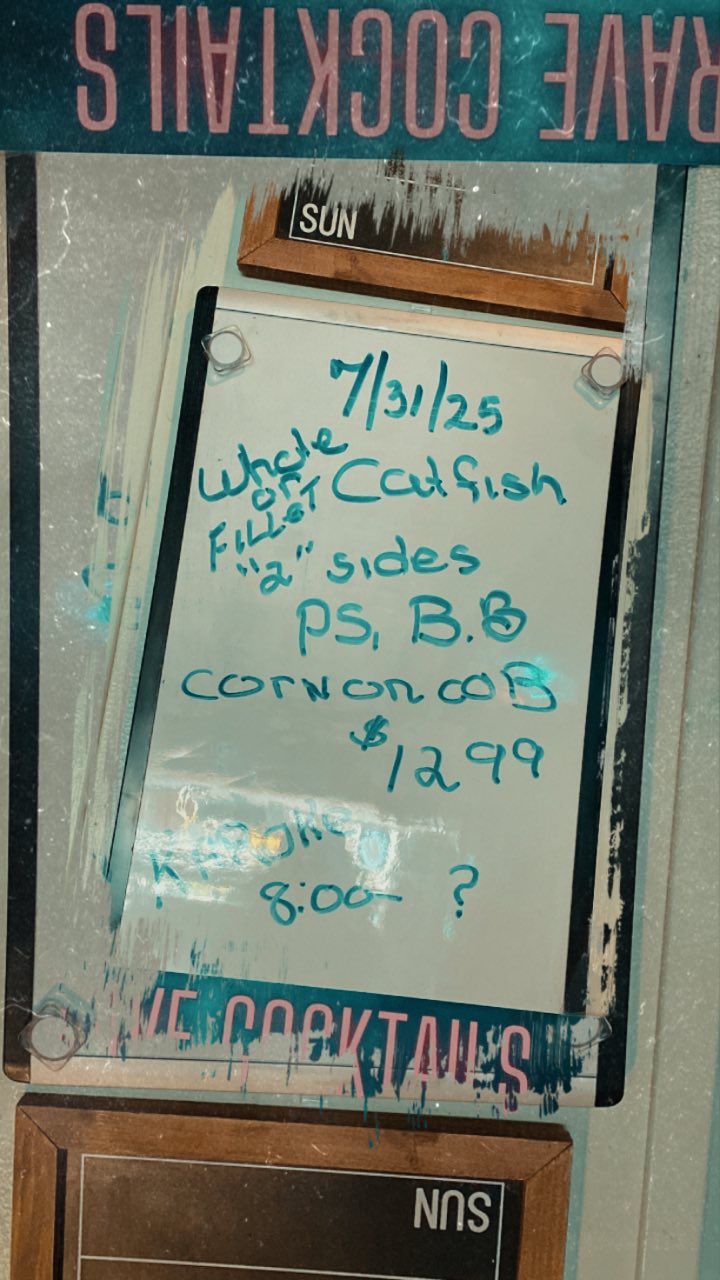 RAVE COCKTAILS
SUN
7/31/25
Whole
or
FILLET
Catfish
"2" sides
PS, B.B
CORN ON COB
$1299
KAROKE
8:00- ?
COCKTAILS
SUN